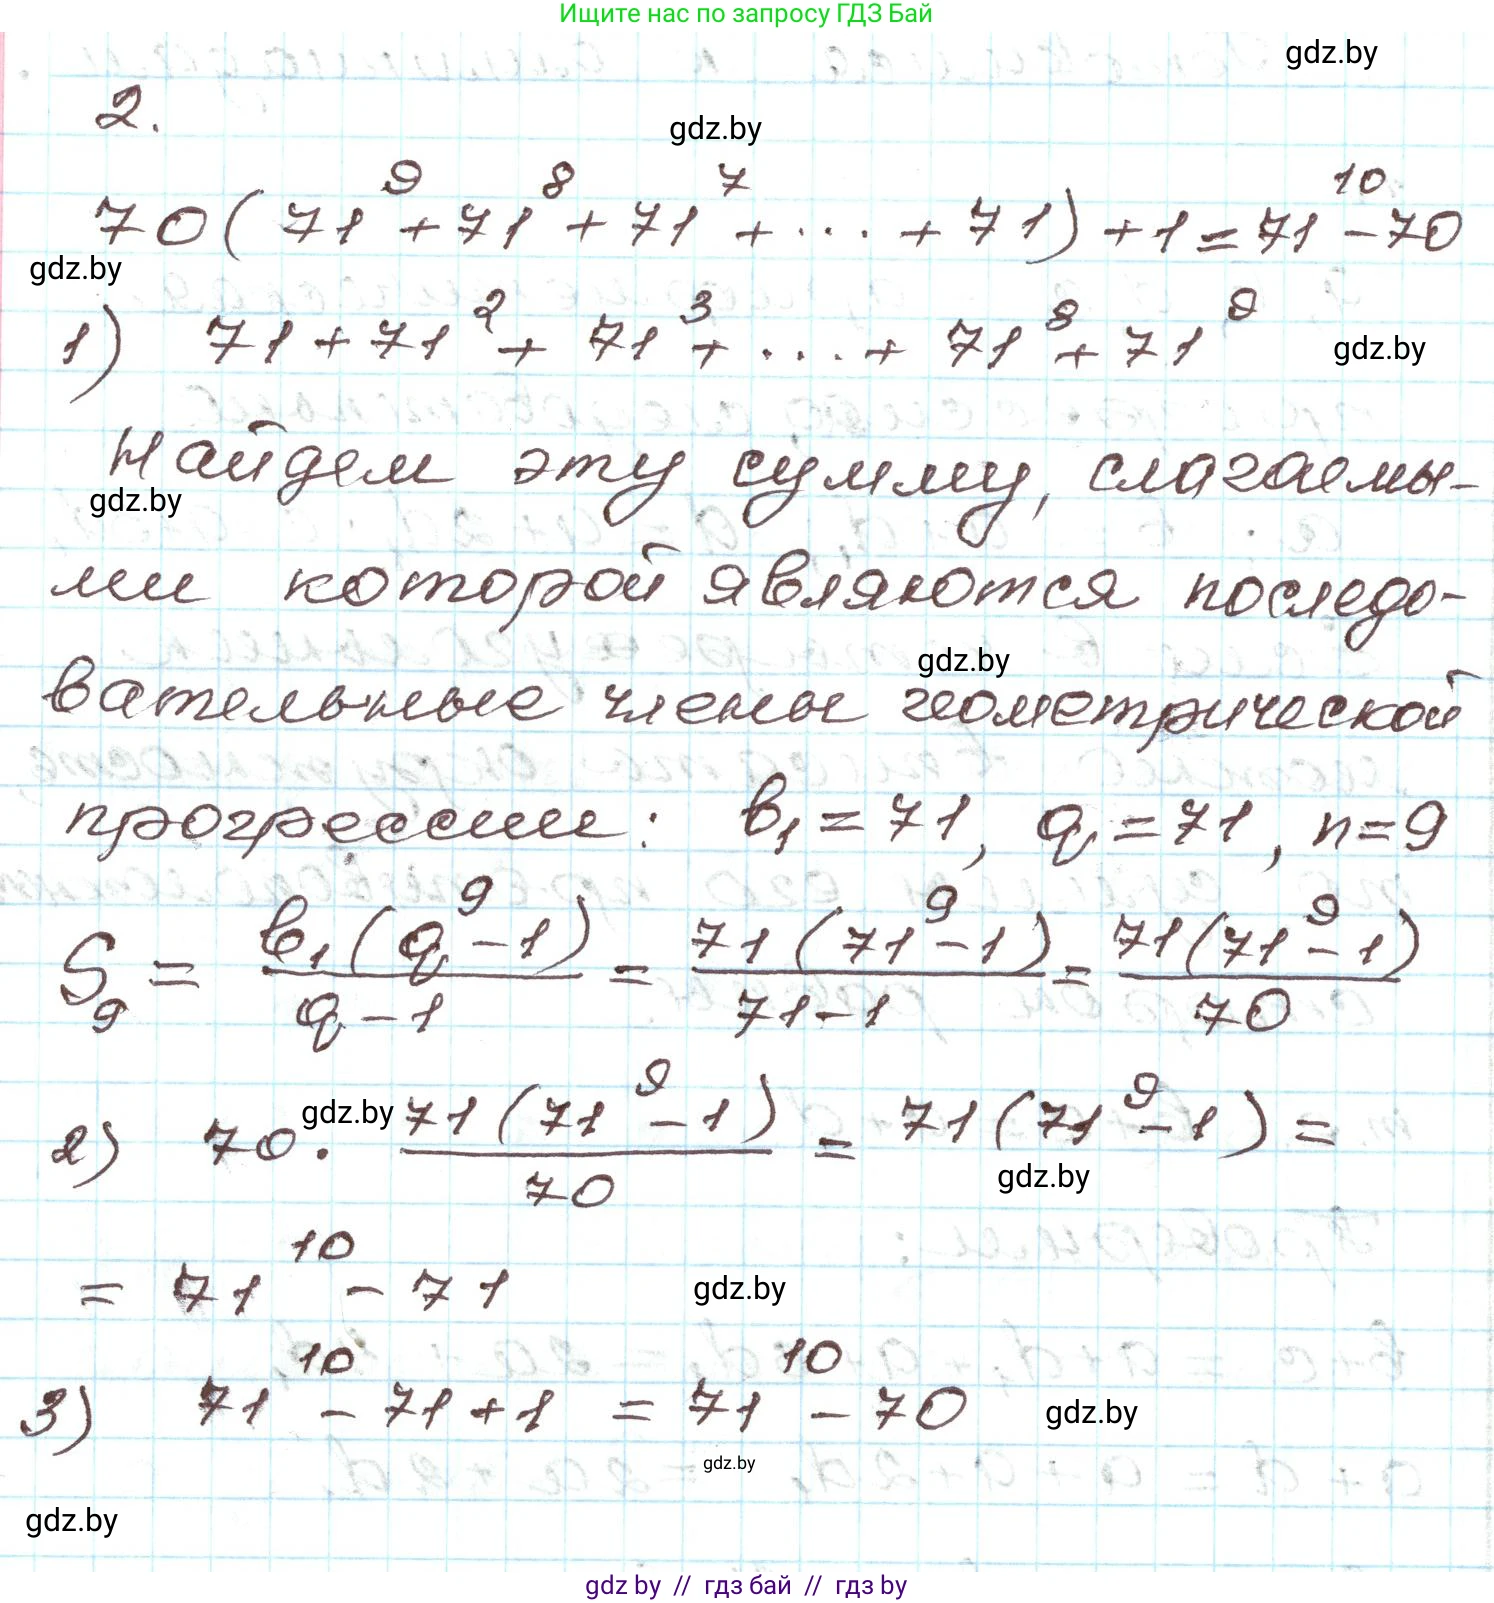 Ищите нас по запросу ГДЗ Бай
gdz.by
2.
gdz.by
70(71⁹+71⁸+71⁷+...+71)+1=71¹⁰-70
gdz.by
1) 71+71²+71³+...+71⁸+71⁹
gdz.by
Найдем эту сумму, слагаемы-
gdz.by
ми которой являются последо-
gdz.by
вательные члены геометрической
прогрессии: b₁=71, q=71, n=9
S₉ = b₁(q⁹-1)/(q-1) = 71(71⁹-1)/(71-1) = 71(71⁹-1)/70
2) 70 · 71(71⁹-1)/70 = 71(71⁹-1) =
gdz.by
gdz.by
= 71¹⁰ - 71
gdz.by
3) 71¹⁰ - 71 + 1 = 71¹⁰ - 70
gdz.by
gdz.by
gdz.by
gdz by // гдз бай // гдз by